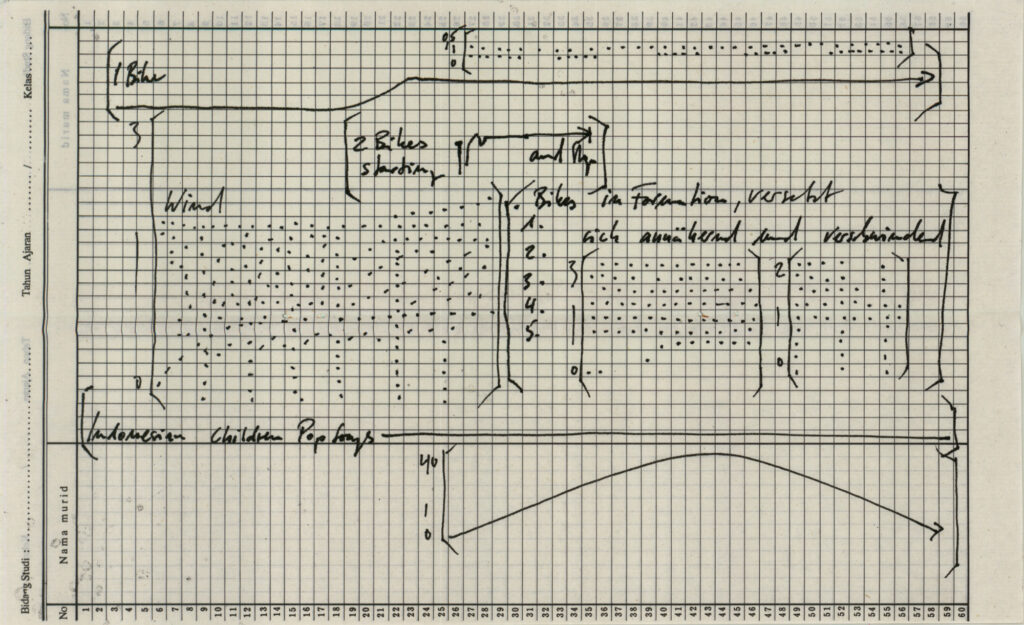 0,5
1
0
1 Bike
3
2 Bikes
starting
and
Wind
Bikes in Formation, versetzt
sich annähernd und verschwindend
1.
2.
3.
4.
5.
3
0
2
0
0
Indonesian Children Pop Songs
40
0
Bidang Studi :
Tahun Ajaran / Kelas
Nama murid
No
1 2 3 4 5 6 7 8 9 10 11 12 13 14 15 16 17 18 19 20 21 22 23 24 25 26 27 28 29 30 31 32 33 34 35 36 37 38 39 40 41 42 43 44 45 46 47 48 49 50 51 52 53 54 55 56 57 58 59 60